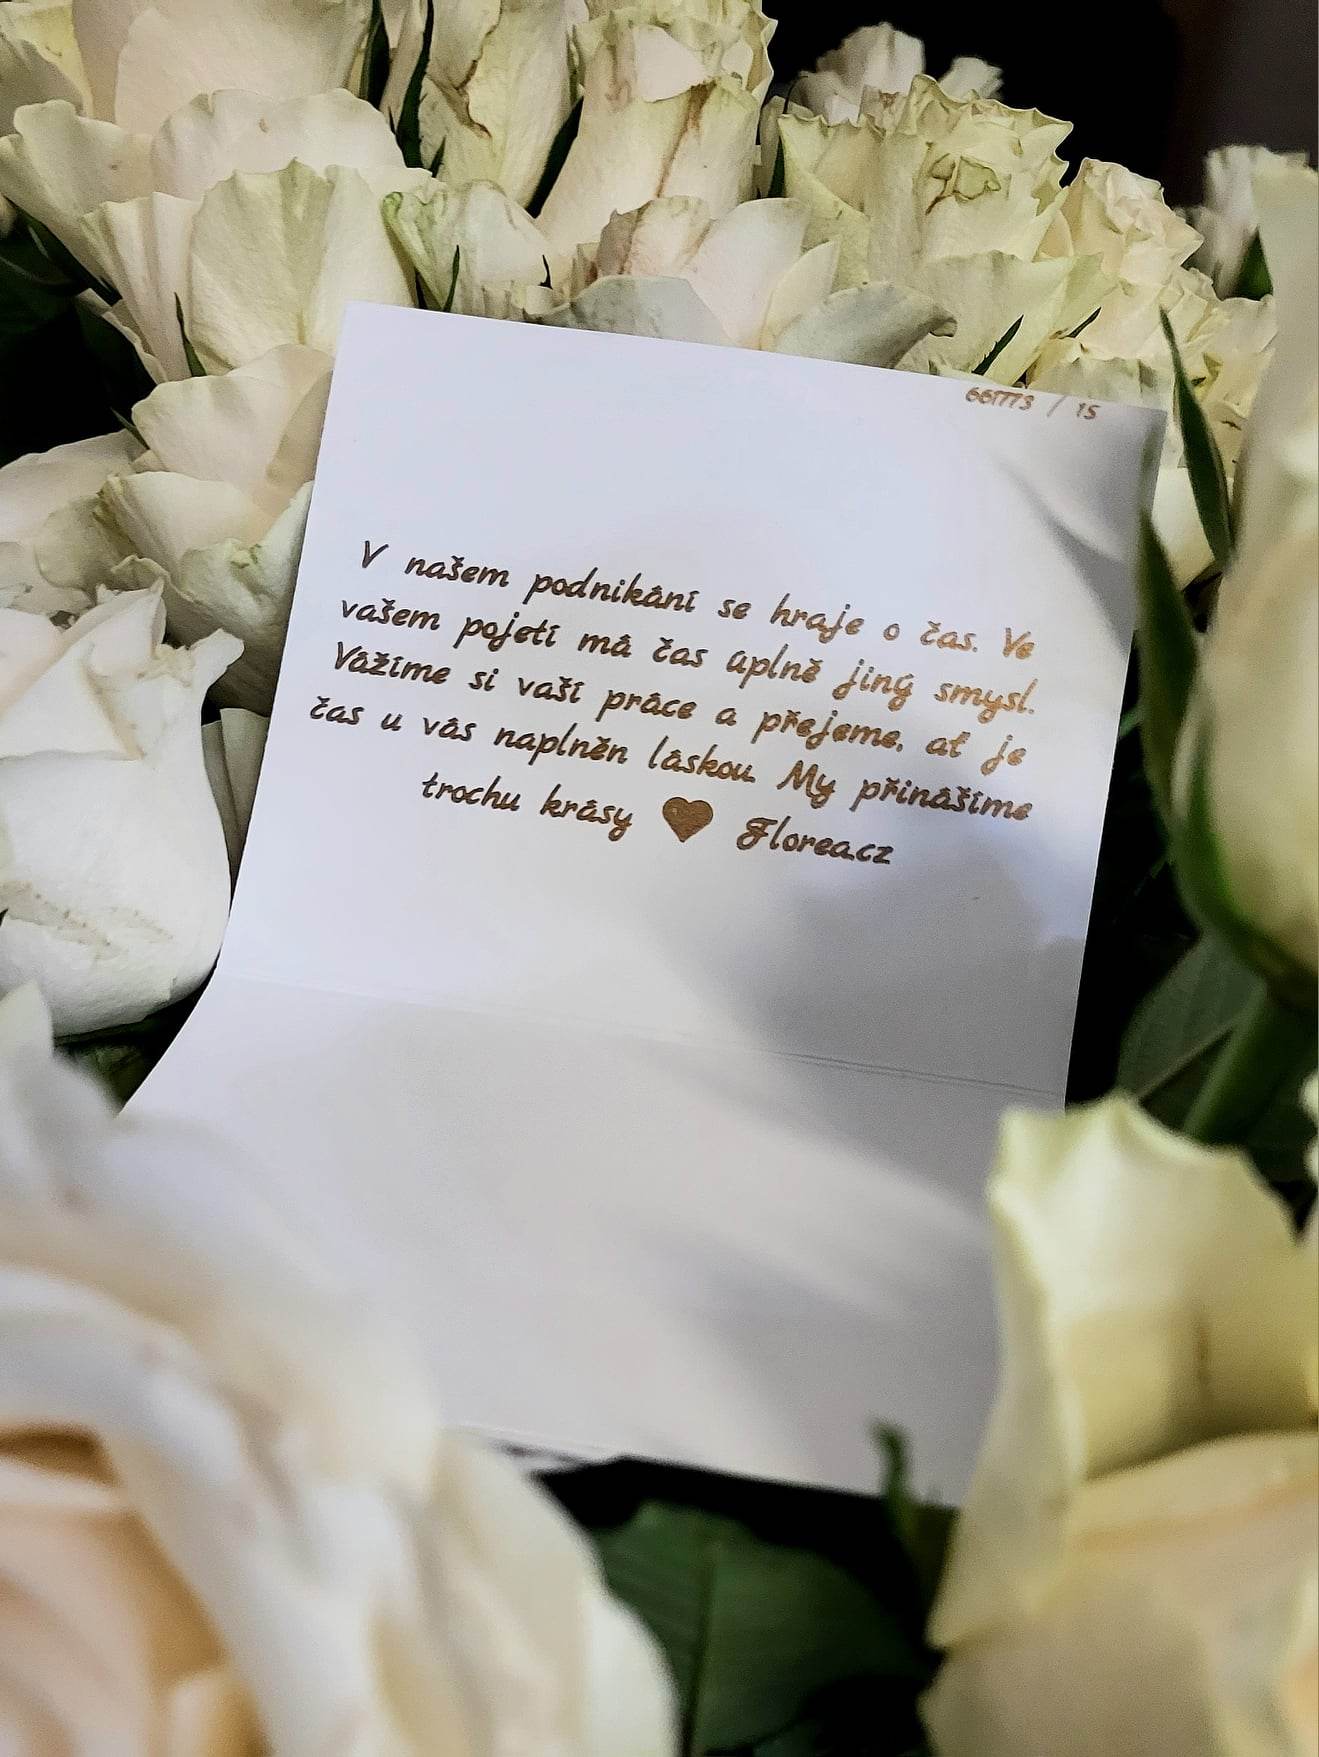 661773 / 15
V našem podnikání se hraje o čas. Ve
vašem pojetí má čas úplně jiný smysl.
Vážíme si vaší práce a přejeme, ať je
čas u vás naplněn láskou. My přinášíme
trochu krásy ♥ Florea.cz